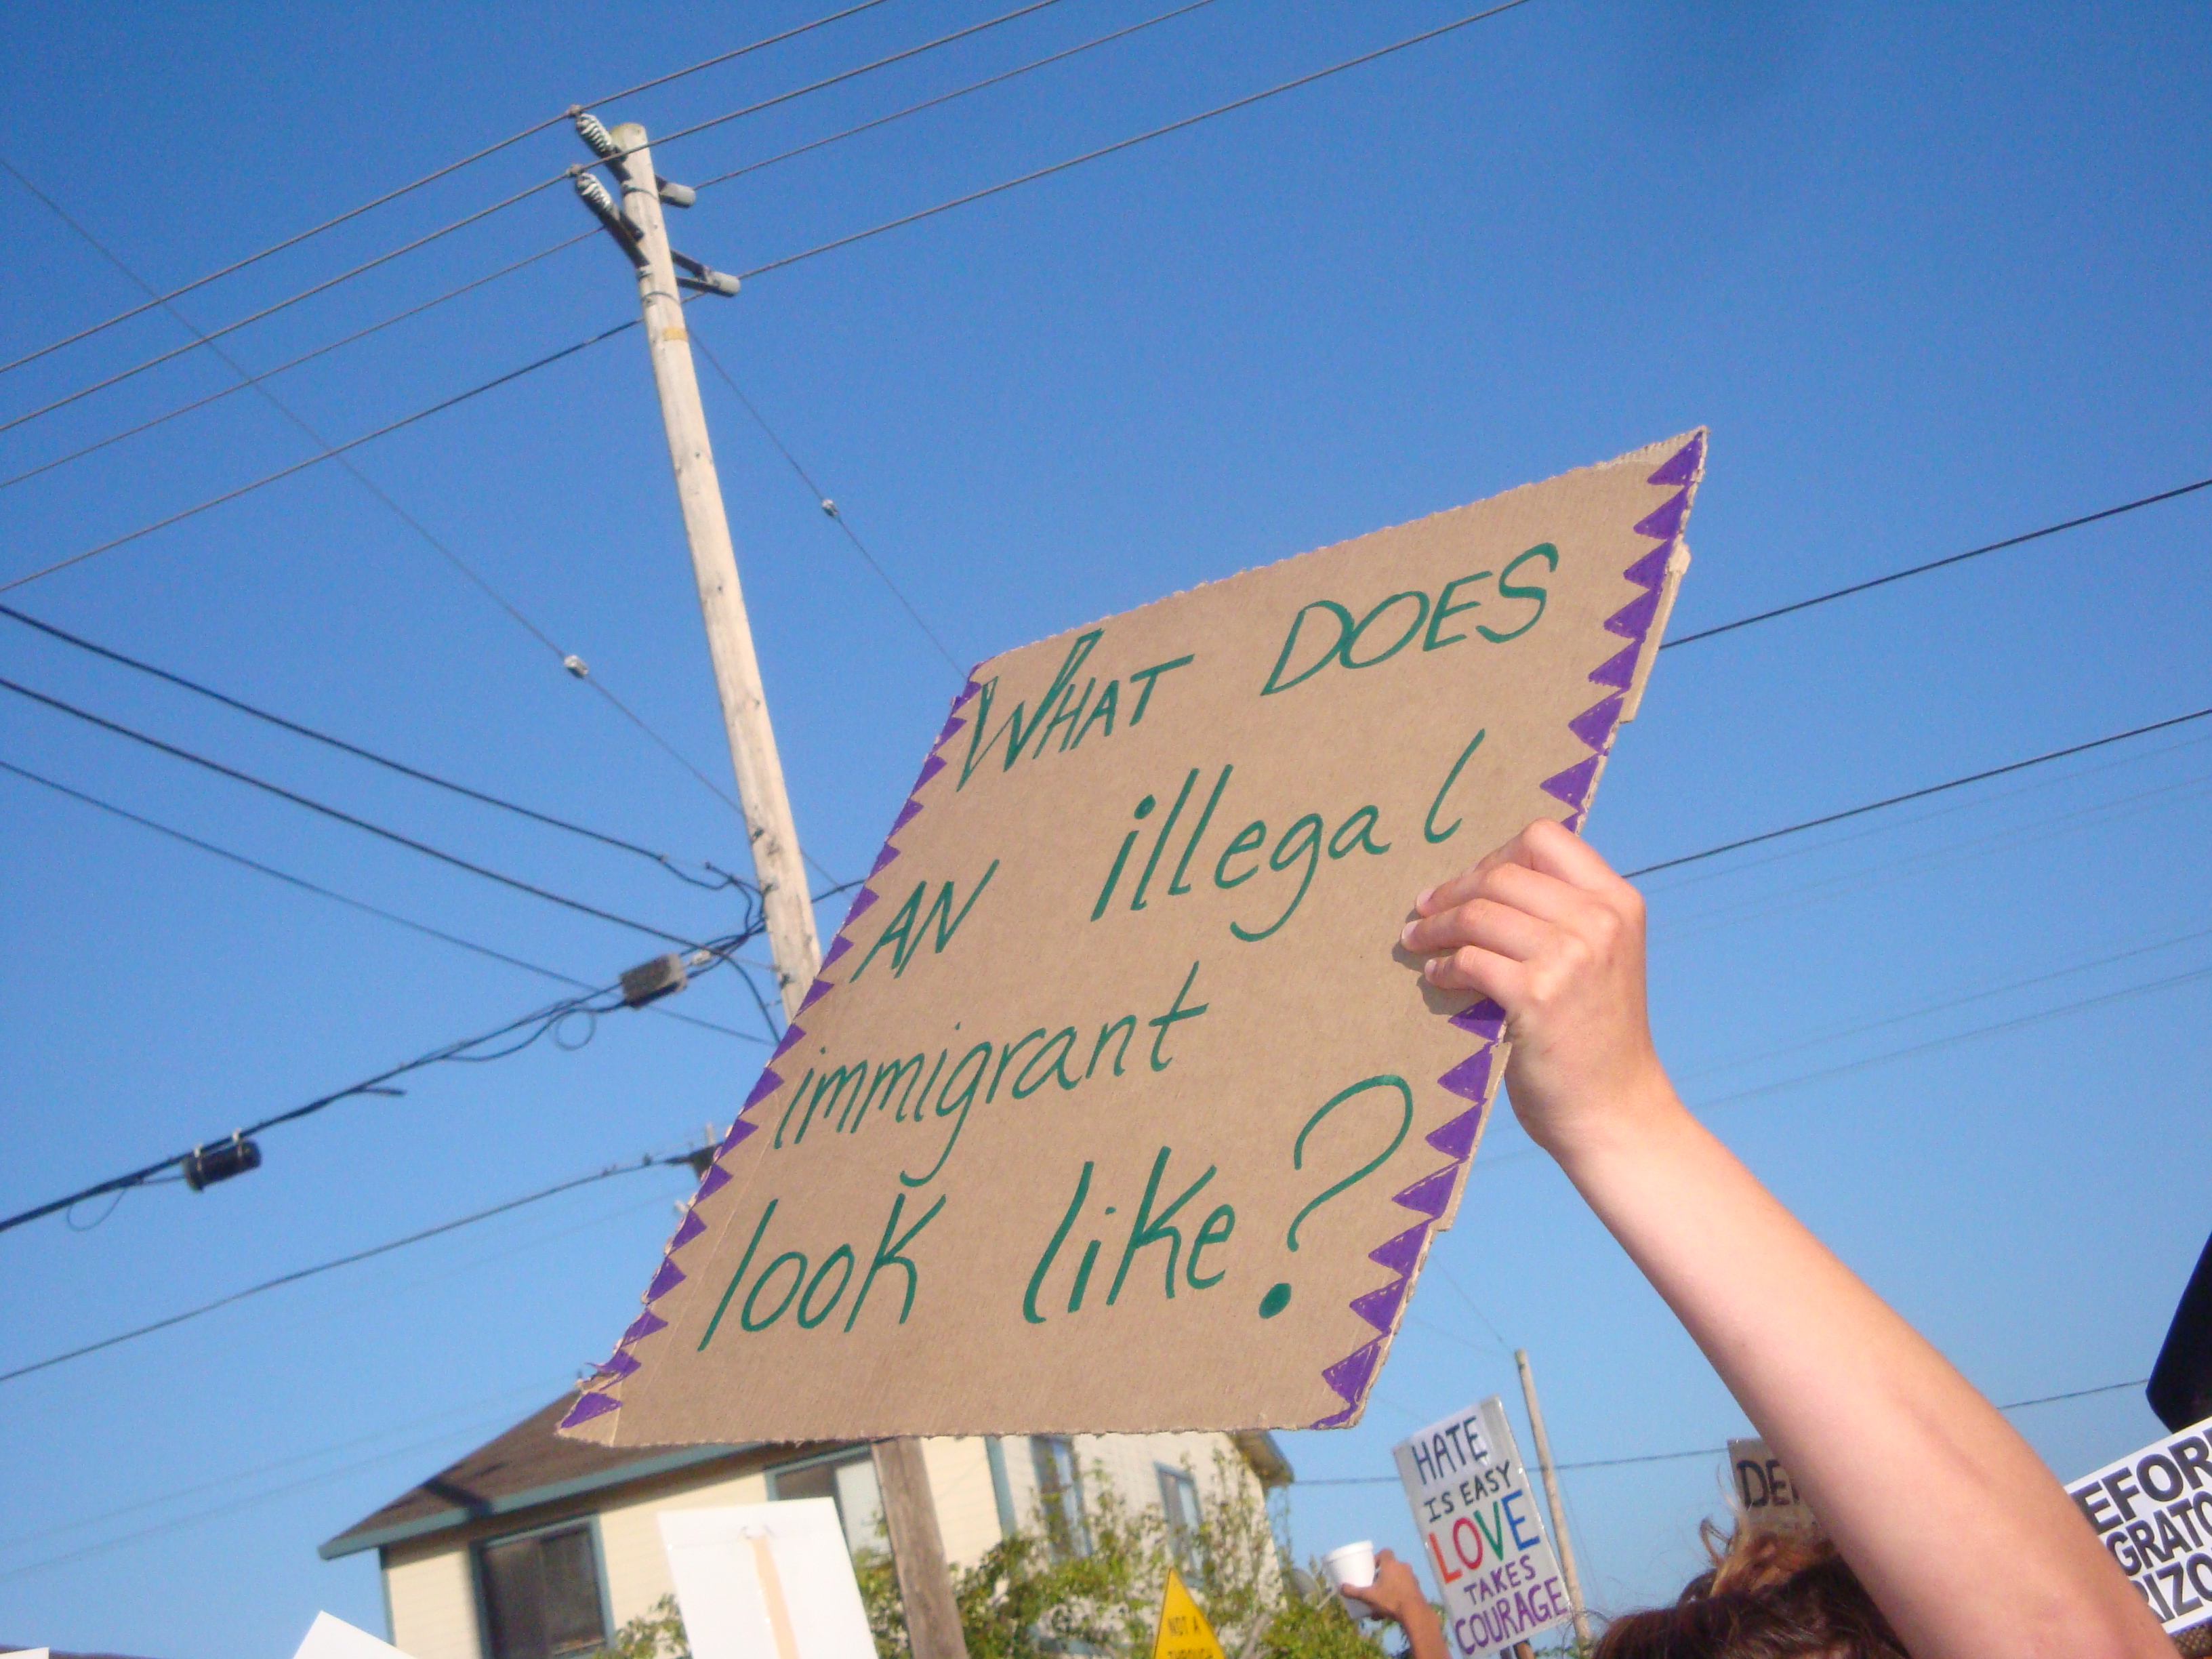 WHAT DOES
AN illegal
immigrant
look like?
HATE
IS EASY
LOVE
TAKES
COURAGE
NOT A